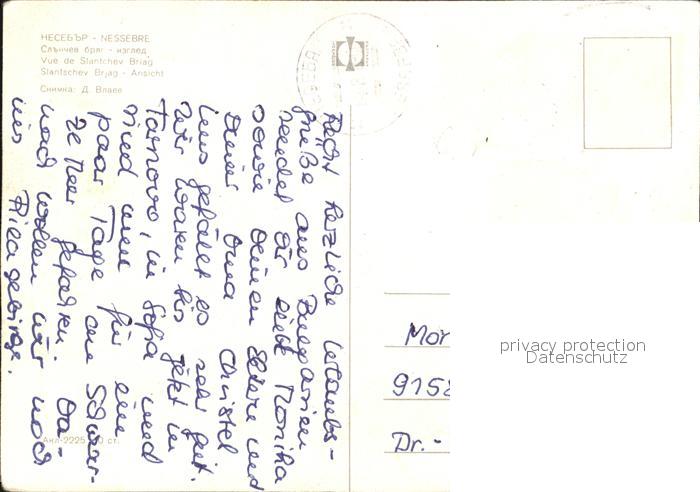 НЕСЕБЪР - NESSEBRE
Слънчев бряг - изглед
Vue de Slantchev Briag
Slantschev Brjag - Ansicht
Снимка: Д. Влаев
Recht herzliche Urlaubs-
grüße aus Bulgarien
sendet Dir liebe Monika
sowie Deinen Eltern und
Deiner Oma Christel
Uns gefällt es sehr gut.
Wir waren bis jetzt in
Tarnovo, in Sofia und
sind nun für ein
paar Tage ans Schwar-
ze Meer gefahren. Da-
nach wollen wir noch
ins Rilagebirge.
Акл-2225
ст.
Mon
9158
Dr.-
privacy protection
Datenschutz